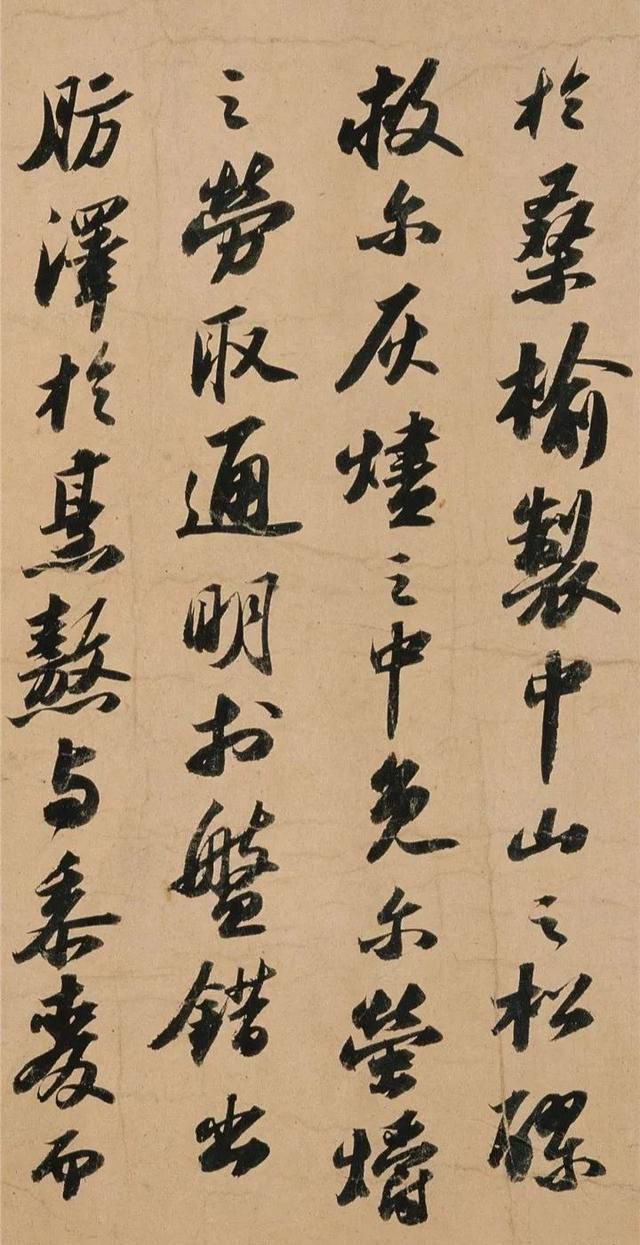 於桑榆製中山之松醪
救尔灰燼之中免尔螢爝
之勞取通明於盤錯出
肪澤於烹熬与黍麥而